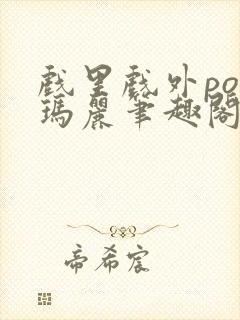 戲里戲外po
瑪麗筆趣閣
帝希宸